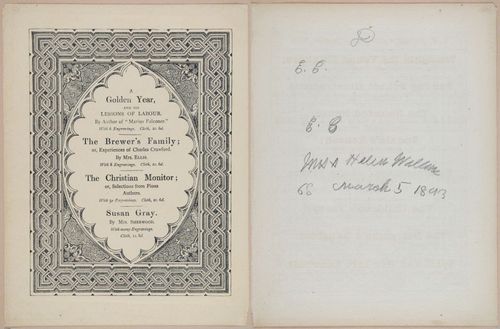 A
Golden Year,
AND ITS
LESSONS OF LABOUR.
By Author of "Marian Falconer."
With 6 Engravings. Cloth, 2s. 6d.
The Brewer's Family;
or, Experiences of Charles Crawford.
By MRS. ELLIS.
With 8 Engravings. Cloth, 2s. 6d.
The Christian Monitor;
or, Selections from Pious
Authors.
With 50 Engravings. Cloth, 2s. 6d.
Susan Gray.
By MRS. SHERWOOD.
With many Engravings.
Cloth, 2s. 6d.
E. E.
E. E
Helen
March 5